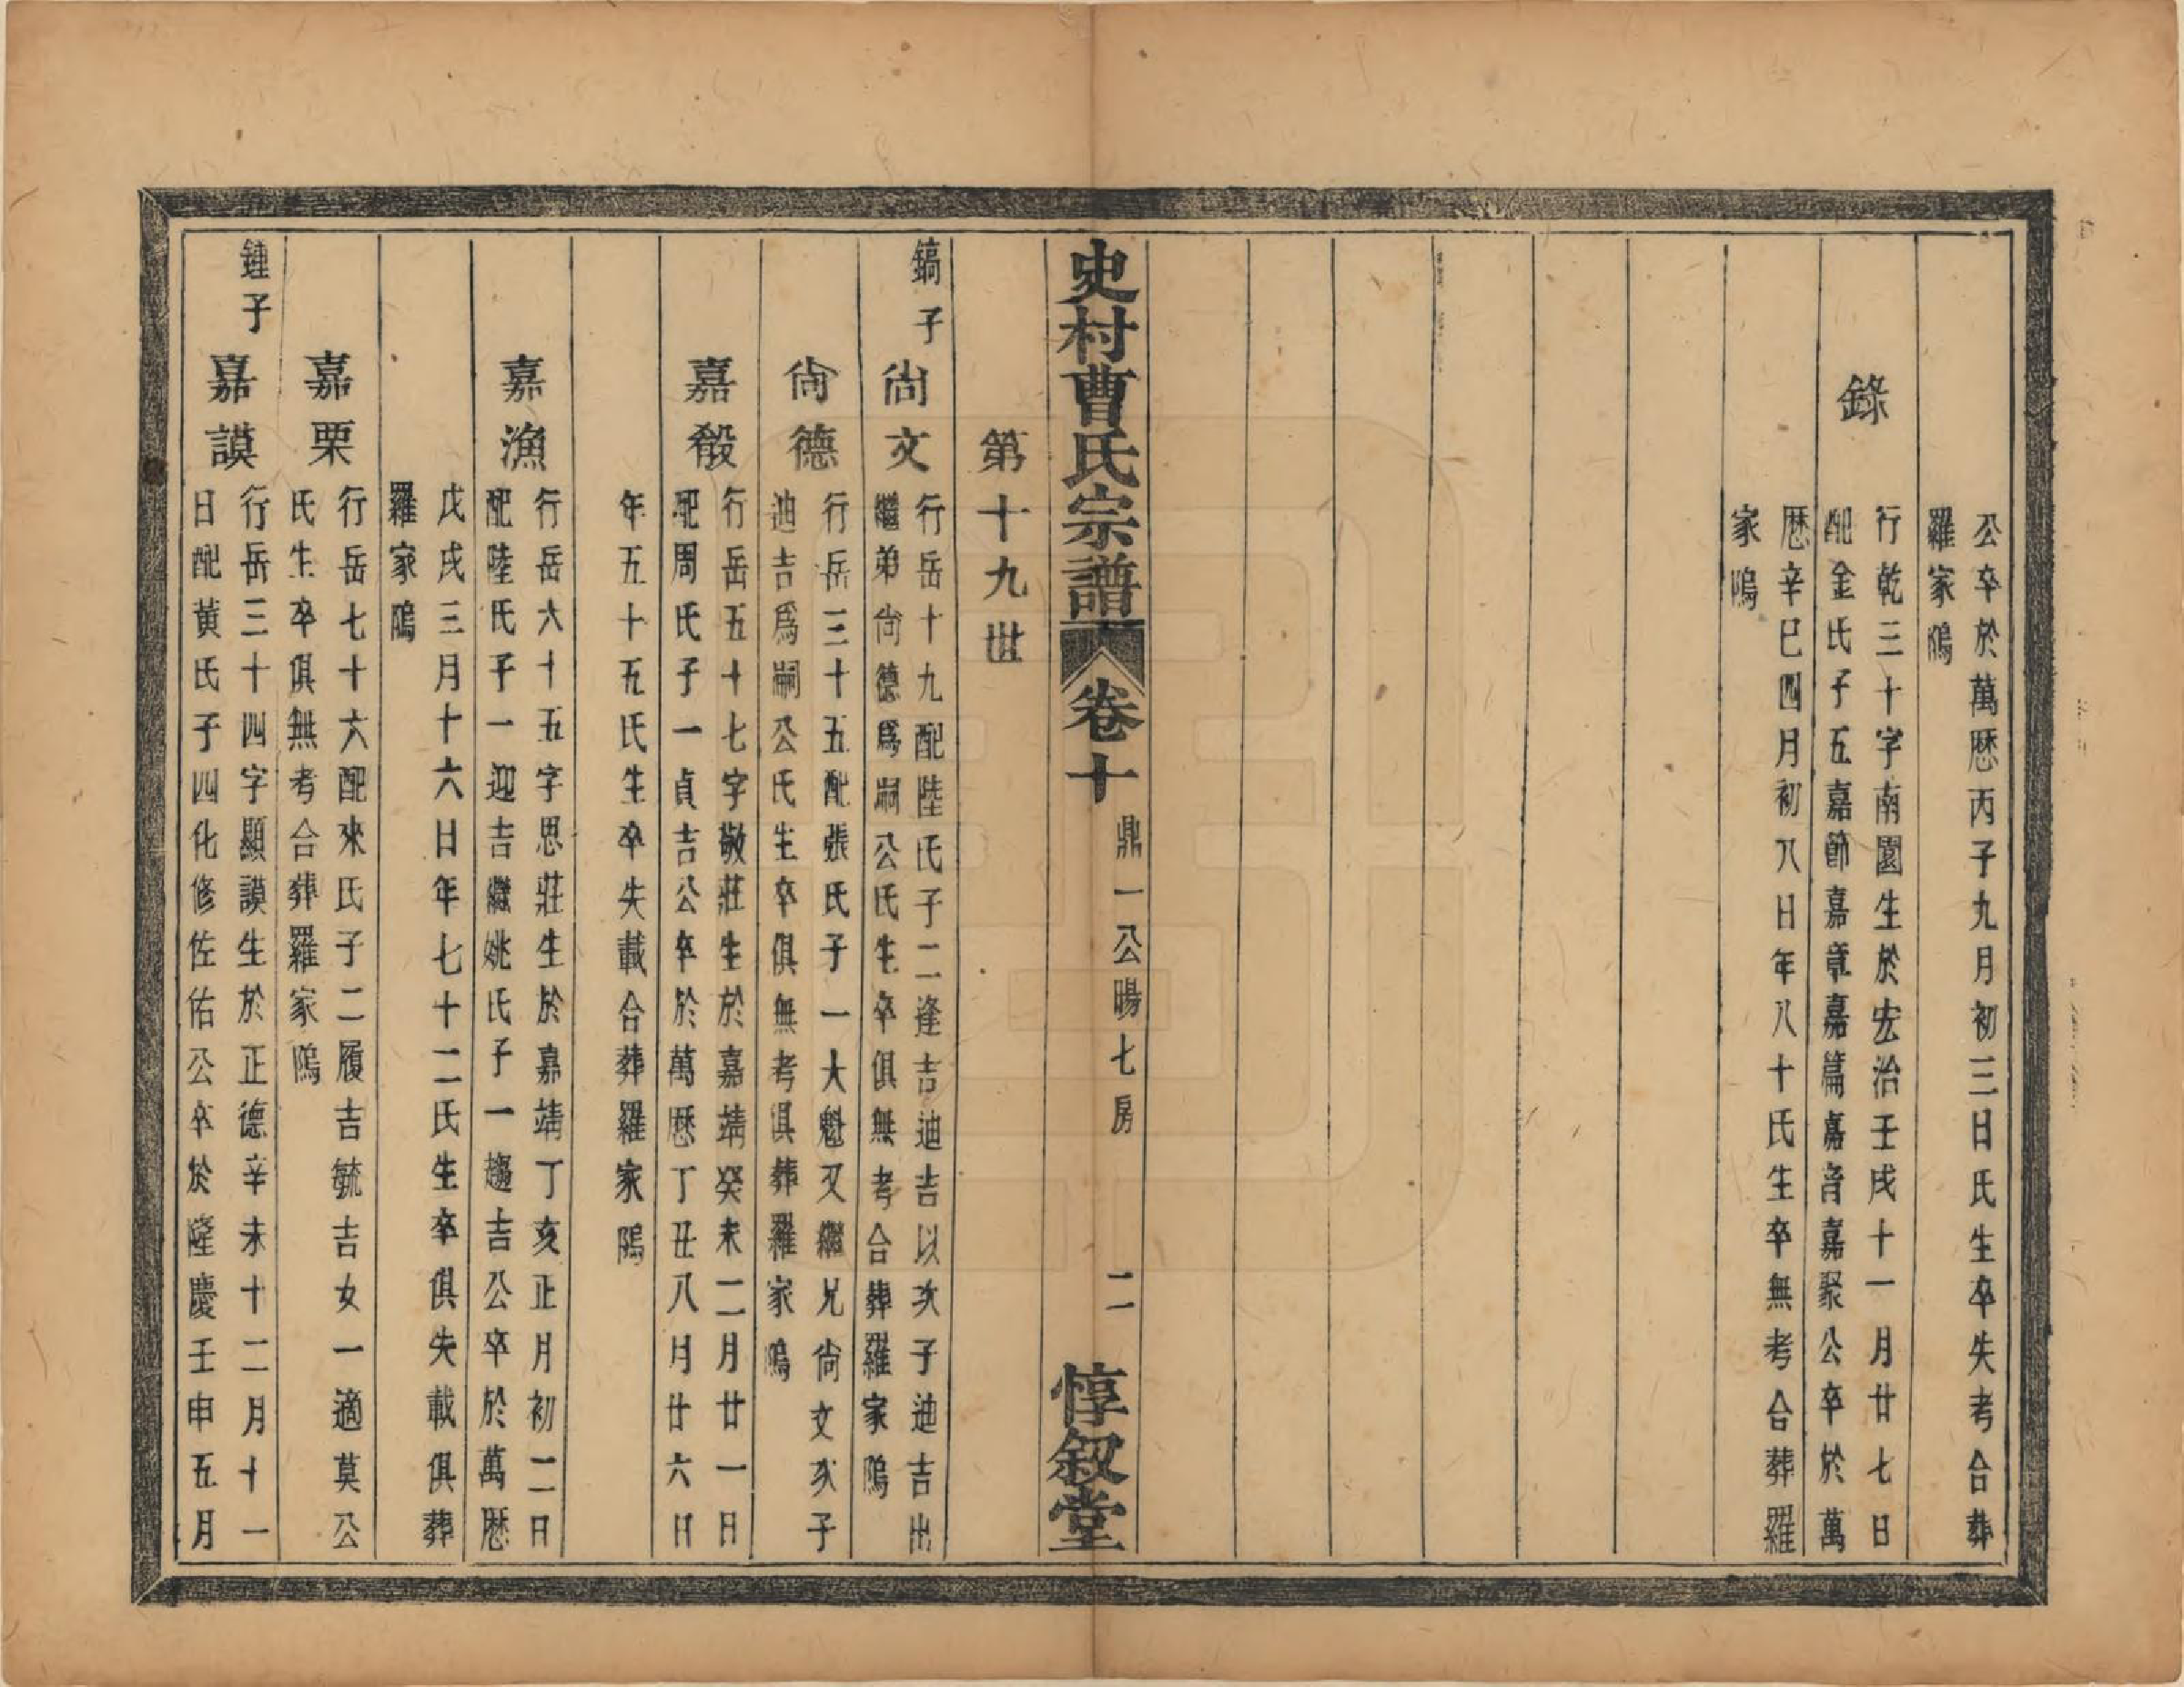 公卒於萬歷丙子九月初三日氏生卒失考合葬
羅家隖
錄
行乾三十字南園生於宏治壬戌十一月廿七日
配金氏子五嘉節嘉章嘉篇嘉音嘉聚公卒於萬
歷辛巳四月初八日年八十氏生卒無考合葬羅
家隖
史村曹氏宗譜
卷十
鼎一公暘七房
二
惇叙堂
第十九世
鎬子
尚文
行岳十九配陸氏子二逢吉迪吉以次子迪吉出
繼弟尚德爲嗣公氏生卒俱無考合葬羅家隖
尚德
行岳三十五配張氏子一大魁又繼兄尚文次子
迪吉爲嗣公氏生卒俱無考俱葬羅家隖
嘉殽
行岳五十七字敬莊生於嘉靖癸未二月廿一日
配周氏子一貞吉公卒於萬歷丁丑八月廿六日
年五十五氏生卒失載合葬羅家隖
嘉漁
行岳六十五字思莊生於嘉靖丁亥正月初二日
配陸氏子一迎吉繼姚氏子一趨吉公卒於萬歷
戊戌三月十六日年七十二氏生卒俱失載俱葬
羅家隖
嘉栗
行岳七十六配來氏子二履吉毓吉女一適莫公
氏生卒俱無考合葬羅家隖
鍾子
嘉謨
行岳三十四字顯謨生於正德辛未十二月十一
日配黃氏子四化修佐佑公卒於隆慶壬申五月